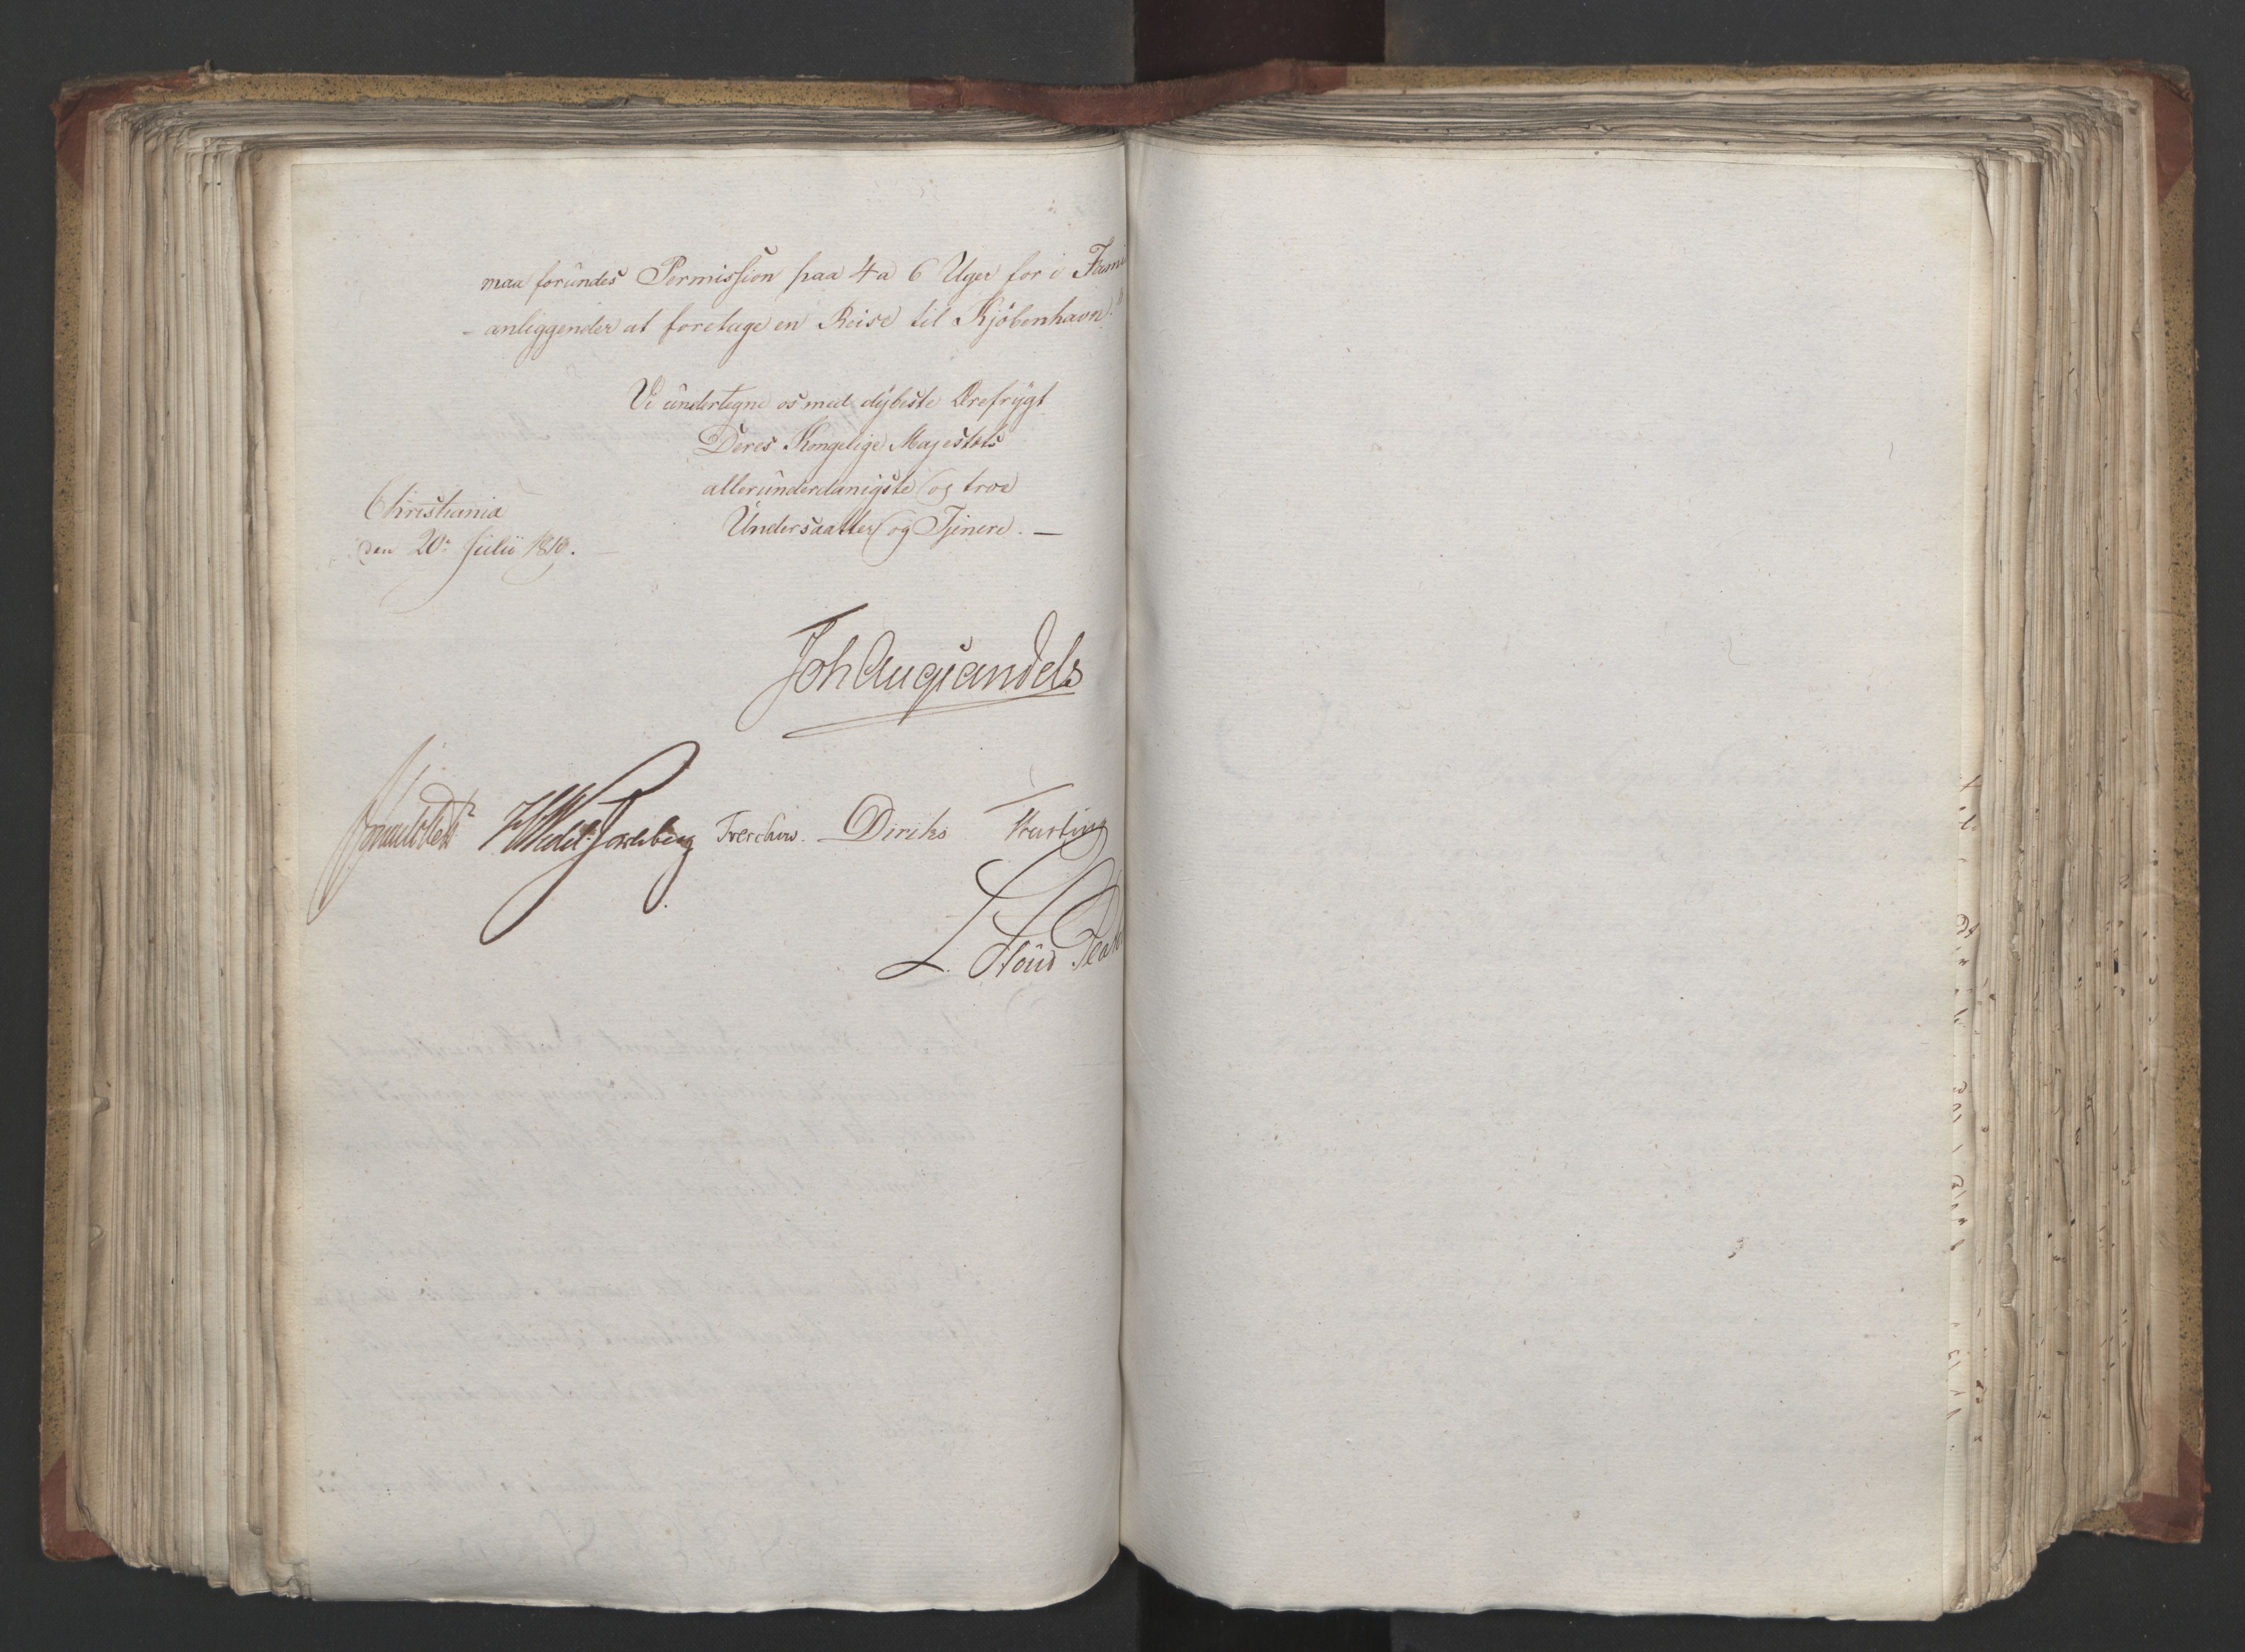 maa forundes Permission paa 4 a 6 Uger for i Fami
- anliggender at foretage en Reise til Kjöbenhavn.
Vi undertegne os med dybeste Ærefrygt
Deres Kongelige Majestæts
allerunderdanigste og troe
Undersaatter og Tjenere. —
Christiania
den 20de Julii 1818.
Joh Aug Sandels
Sommerhielm HWedel Jarlsberg Treschow. Diriks Fasting
L. Stoud Plat